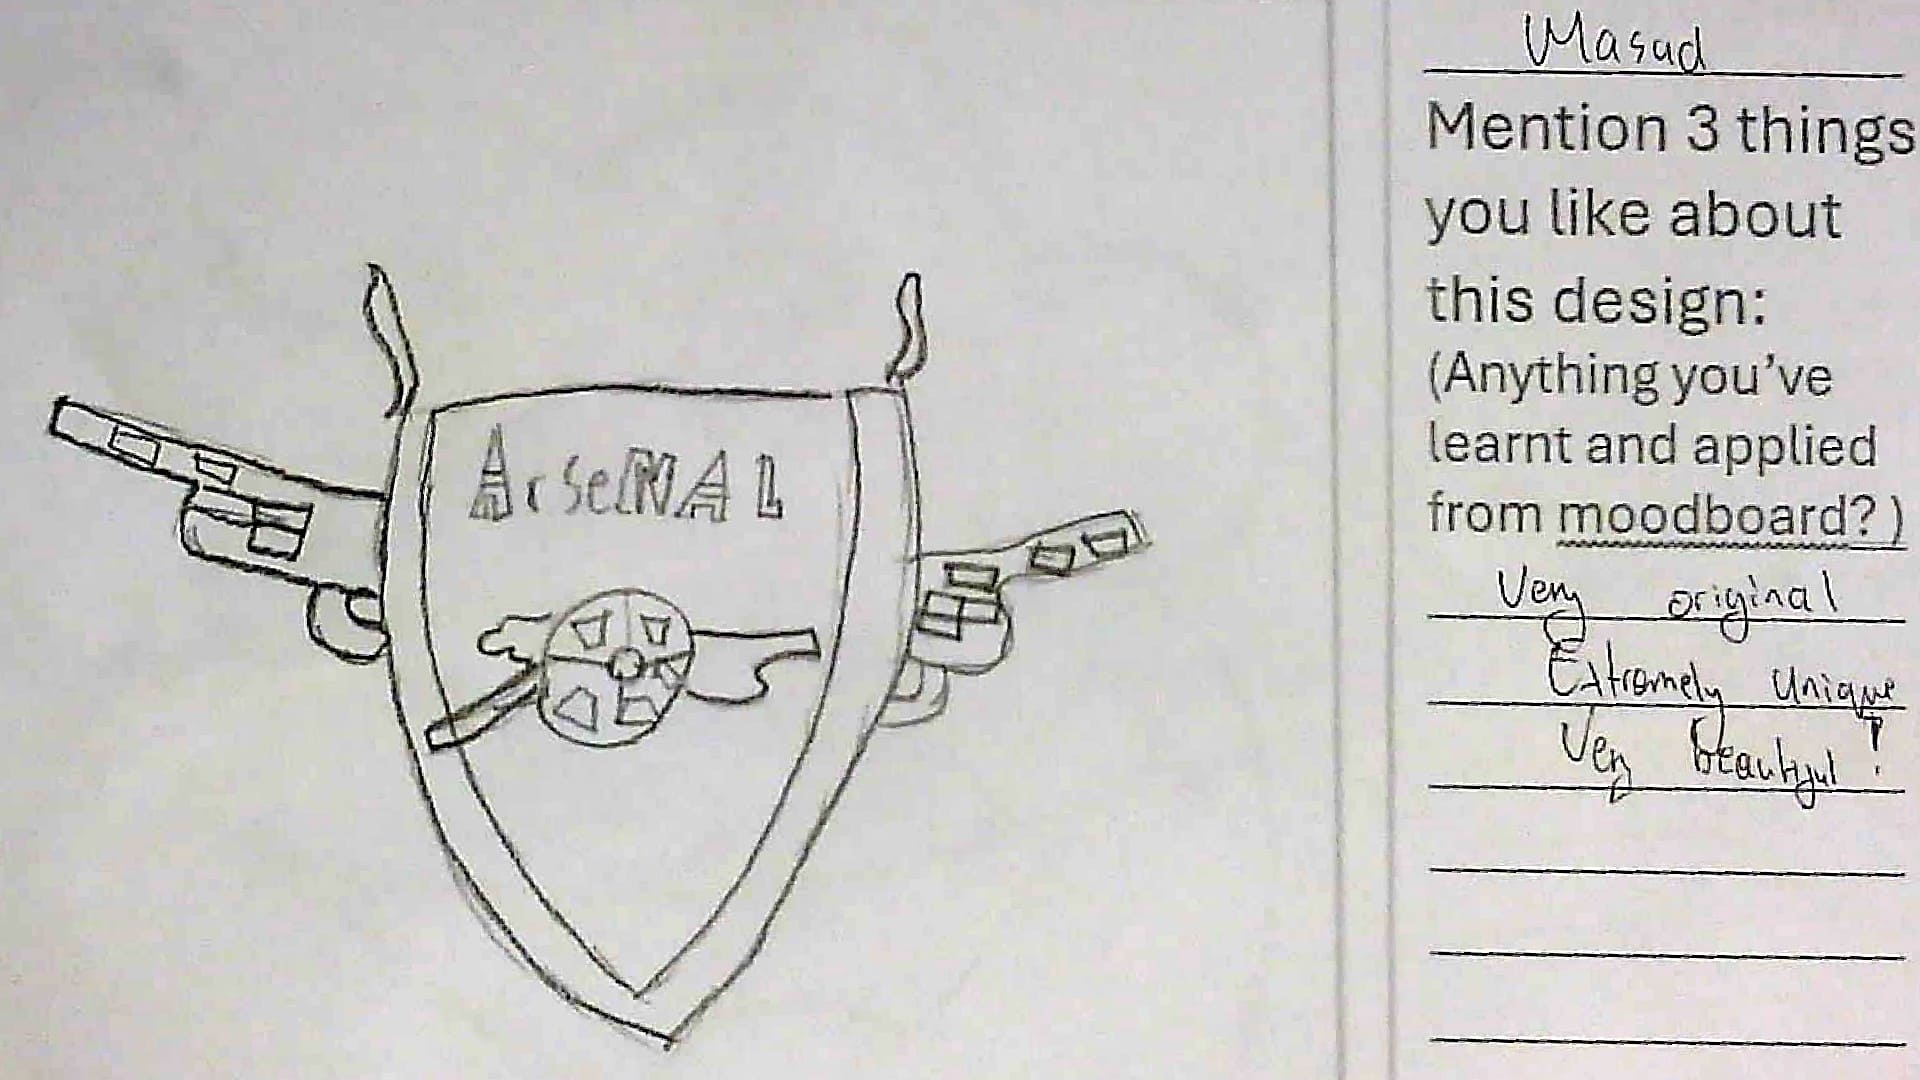 ArseNAL
Masud
Mention 3 things
you like about
this design:
(Anything you've
learnt and applied
from moodboard? )
Very original
Extremely unique
Very beautyul !